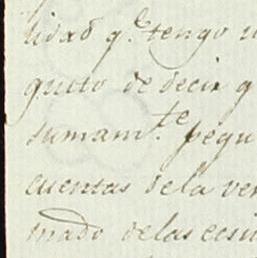 lidad q.e tengo
gusto de decir q
sumam.te pequ
cuentas dela ven
mado delas